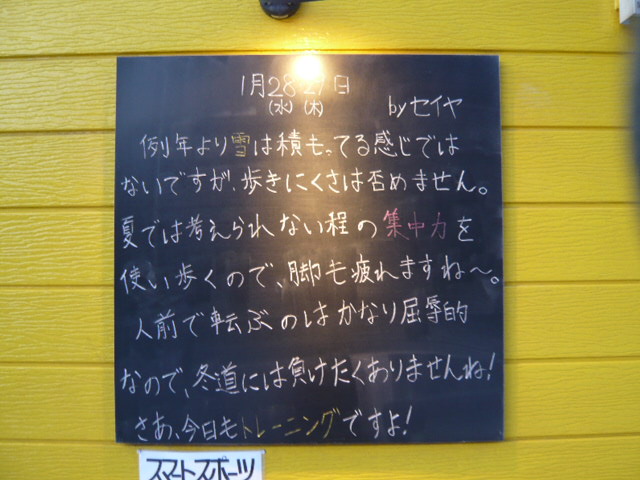 1月28 29日
(水) (木) byセイヤ
例年より雪は積もってる感じでは
ないですが、歩きにくさは否めません。
夏では考えられない程の集中力を
使い歩くので、脚も疲れますね〜。
人前で転ぶのはかなり屈辱的
なので、冬道には負けたくありませんね!
さあ、今日もトレーニングですよ!
スマートスポーツ